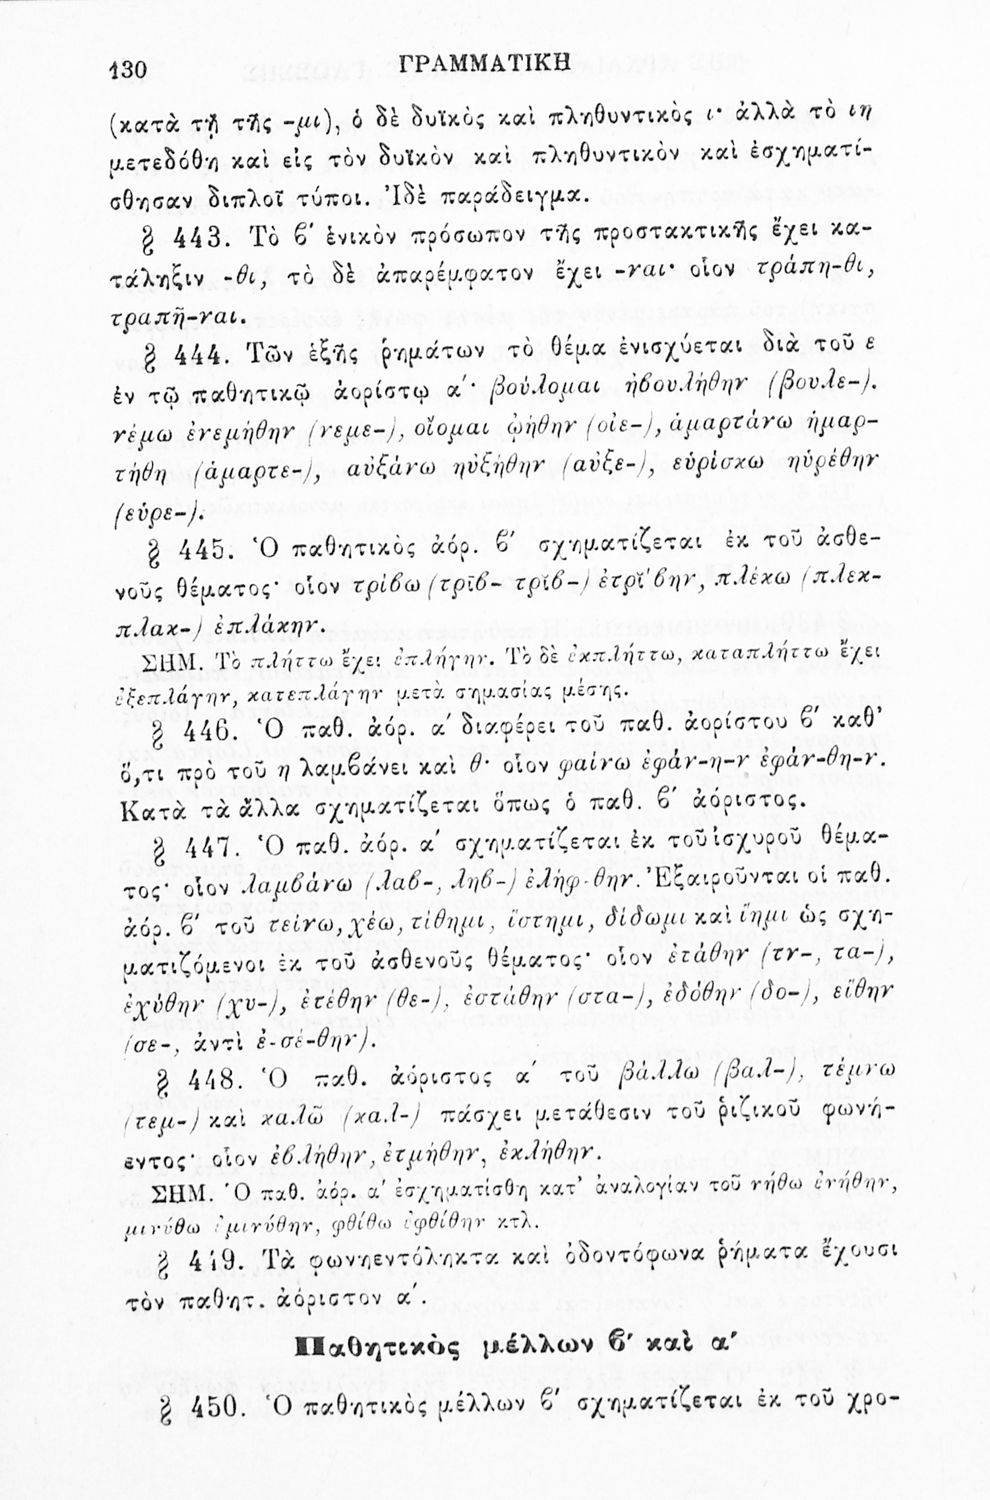 130 ΓΡΑΜΜΑΤΙΚΗ
(κατὰ τῇ τῆς -μι), ὁ δὲ δυϊκὸς καὶ πληθυντικὸς ι· ἀλλὰ τὸ ιη
μετεδόθη καὶ εἰς τὸν δυϊκὸν καὶ πληθυντικὸν καὶ ἐσχηματί-
σθησαν διπλοῖ τύποι. Ἰδὲ παράδειγμα.
§ 443. Τὸ ϐ′ ἑνικὸν πρόσωπον τῆς προστακτικῆς ἔχει κα-
τάληξιν -θι, τὸ δὲ ἀπαρέμφατον ἔχει -ναι· οἷον τράπη-θι,
τραπῆ-ναι.
§ 444. Τῶν ἑξῆς ῥημάτων τὸ θέμα ἐνισχύεται διὰ τοῦ ε
ἐν τῷ παθητικῷ ἀορίστῳ α′· βούλομαι ἠβουλήθην (βουλε-).
νέμω ἐνεμήθην (νεμε-), οἴομαι ᾠήθην (οἰε-), ἁμαρτάνω ἡμαρ-
τήθη (ἁμαρτε-), αὐξάνω ηὐξήθην (αὐξε-), εὑρίσκω ηὑρέθην
(εὑρε-).
§ 445. Ὁ παθητικὸς ἀόρ. ϐ′ σχηματίζεται ἐκ τοῦ ἀσθε-
νοῦς θέματος· οἷον τρίϐω (τρῑϐ- τρῐϐ-) ἐτρῐ́ϐην, πλέκω (πλεκ-
πλακ-) ἐπλάκην.
ΣΗΜ. Τὸ πλήττω ἔχει ἐπλήγην. Τὸ δὲ ἐκπλήττω, καταπλήττω ἔχει
ἐξεπλάγην, κατεπλάγην μετὰ σημασίας μέσης.
§ 446. Ὁ παθ. ἀόρ. α′ διαφέρει τοῦ παθ. ἀορίστου ϐ′ καθ’
ὅ,τι πρὸ τοῦ η λαμϐάνει καὶ θ· οἷον φαίνω ἐφάν-η-ν ἐφάν-θη-ν.
Κατὰ τὰ ἄλλα σχηματίζεται ὅπως ὁ παθ. ϐ′ ἀόριστος.
§ 447. Ὁ παθ. ἀόρ. α′ σχηματίζεται ἐκ τοῦ ἰσχυροῦ θέμα-
τος· οἷον λαμϐάνω (λαϐ-, ληϐ-) ἐλήφ-θην. Ἐξαιροῦνται οἱ παθ.
ἀόρ. ϐ′ τοῦ τείνω, χέω, τίθημι, ἵστημι, δίδωμι καὶ ἵημι ὡς σχη-
ματιζόμενοι ἐκ τοῦ ἀσθενοῦς θέματος· οἷον ἐτάθην (τν-, τα-),
ἐχύθην (χυ-), ἐτέθην (θε-), ἐστάθην (στα-), ἐδόθην (δο-), εἵθην
(σε-, ἀντὶ ἐ-σέ-θην).
§ 448. Ὁ παθ. ἀόριστος α′ τοῦ βάλλω (βαλ-), τέμνω
(τεμ-) καὶ καλῶ (καλ-) πάσχει μετάθεσιν τοῦ ῥιζικοῦ φωνή-
εντος· οἷον ἐϐλήθην, ἐτμήθην, ἐκλήθην.
ΣΗΜ. Ὁ παθ. ἀόρ. α′ ἐσχηματίσθη κατ’ ἀναλογίαν τοῦ νήθω ἐνήθην,
μινύθω ἐμινύθην, φθίθω ἐφθίθην κτλ.
§ 449. Τὰ φωνηεντόληκτα καὶ ὀδοντόφωνα ῥήματα ἔχουσι
τὸν παθητ. ἀόριστον α′.
Παθητικὸς μέλλων ϐ′ καὶ α′
§ 450. Ὁ παθητικὸς μέλλων ϐ′ σχηματίζεται ἐκ τοῦ χρο-